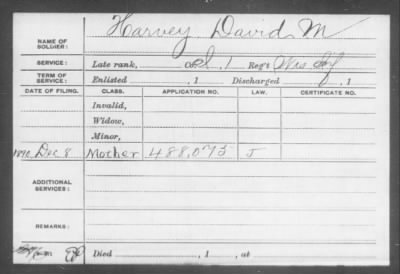 NAME OF SOLDIER: Harvey, David M
SERVICE: Late rank, Col. 1 Reg't Wis Inf
TERM OF SERVICE: Enlisted , 1 Discharged , 1
DATE OF FILING. CLASS. APPLICATION NO. LAW. CERTIFICATE NO.
Invalid,
Widow,
Minor,
1890, Dec 8 Mother 488,075 J
ADDITIONAL SERVICES:
REMARKS:
Died , 1 , at